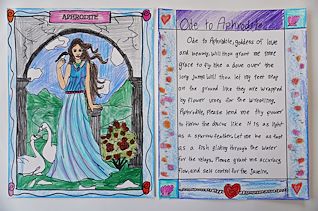 APHRODITE
Ode to Aphrodite
Ode to Aphrodite, goddess of love
and beauty, Will thou grant me some
grace to fly like a dove over the
long jump? Will thou let my feet stay
on the ground like they are wrapped
by flower vines for the wrestling,
Aphrodite, Please lend me thy power
to throw the discus like it is as light
as a sparrow feather. Let me be as fast
as a fish gliding through the water
for the relays. Please grant me accuracy,
flow, and self control for the javelin.